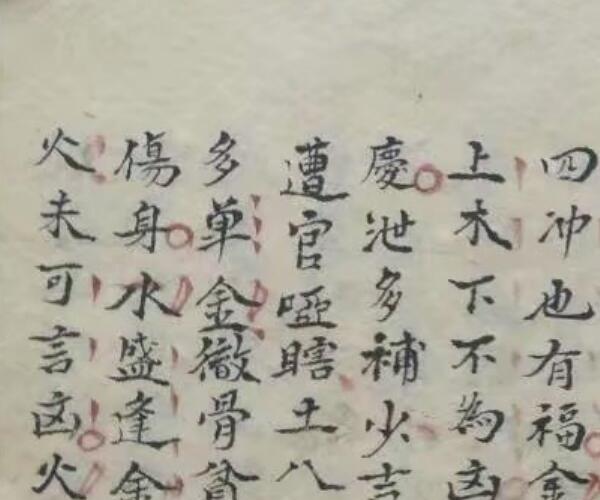 四冲也有福金
上木下不為凶
慶泄多補少吉
遭官啞瞎土八
多单金徹骨貧
傷身水盛逢金
火未可言凶火